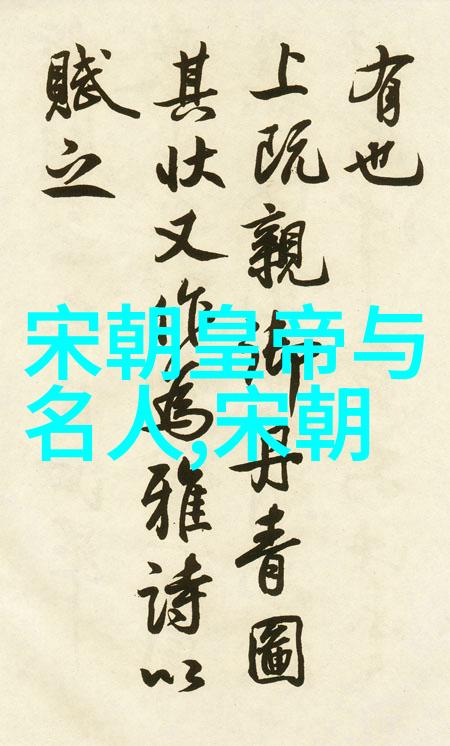 有也
上既親御丹青圖
其状又作為雅詩以
賦之
宋朝皇帝与
名人,宋朝